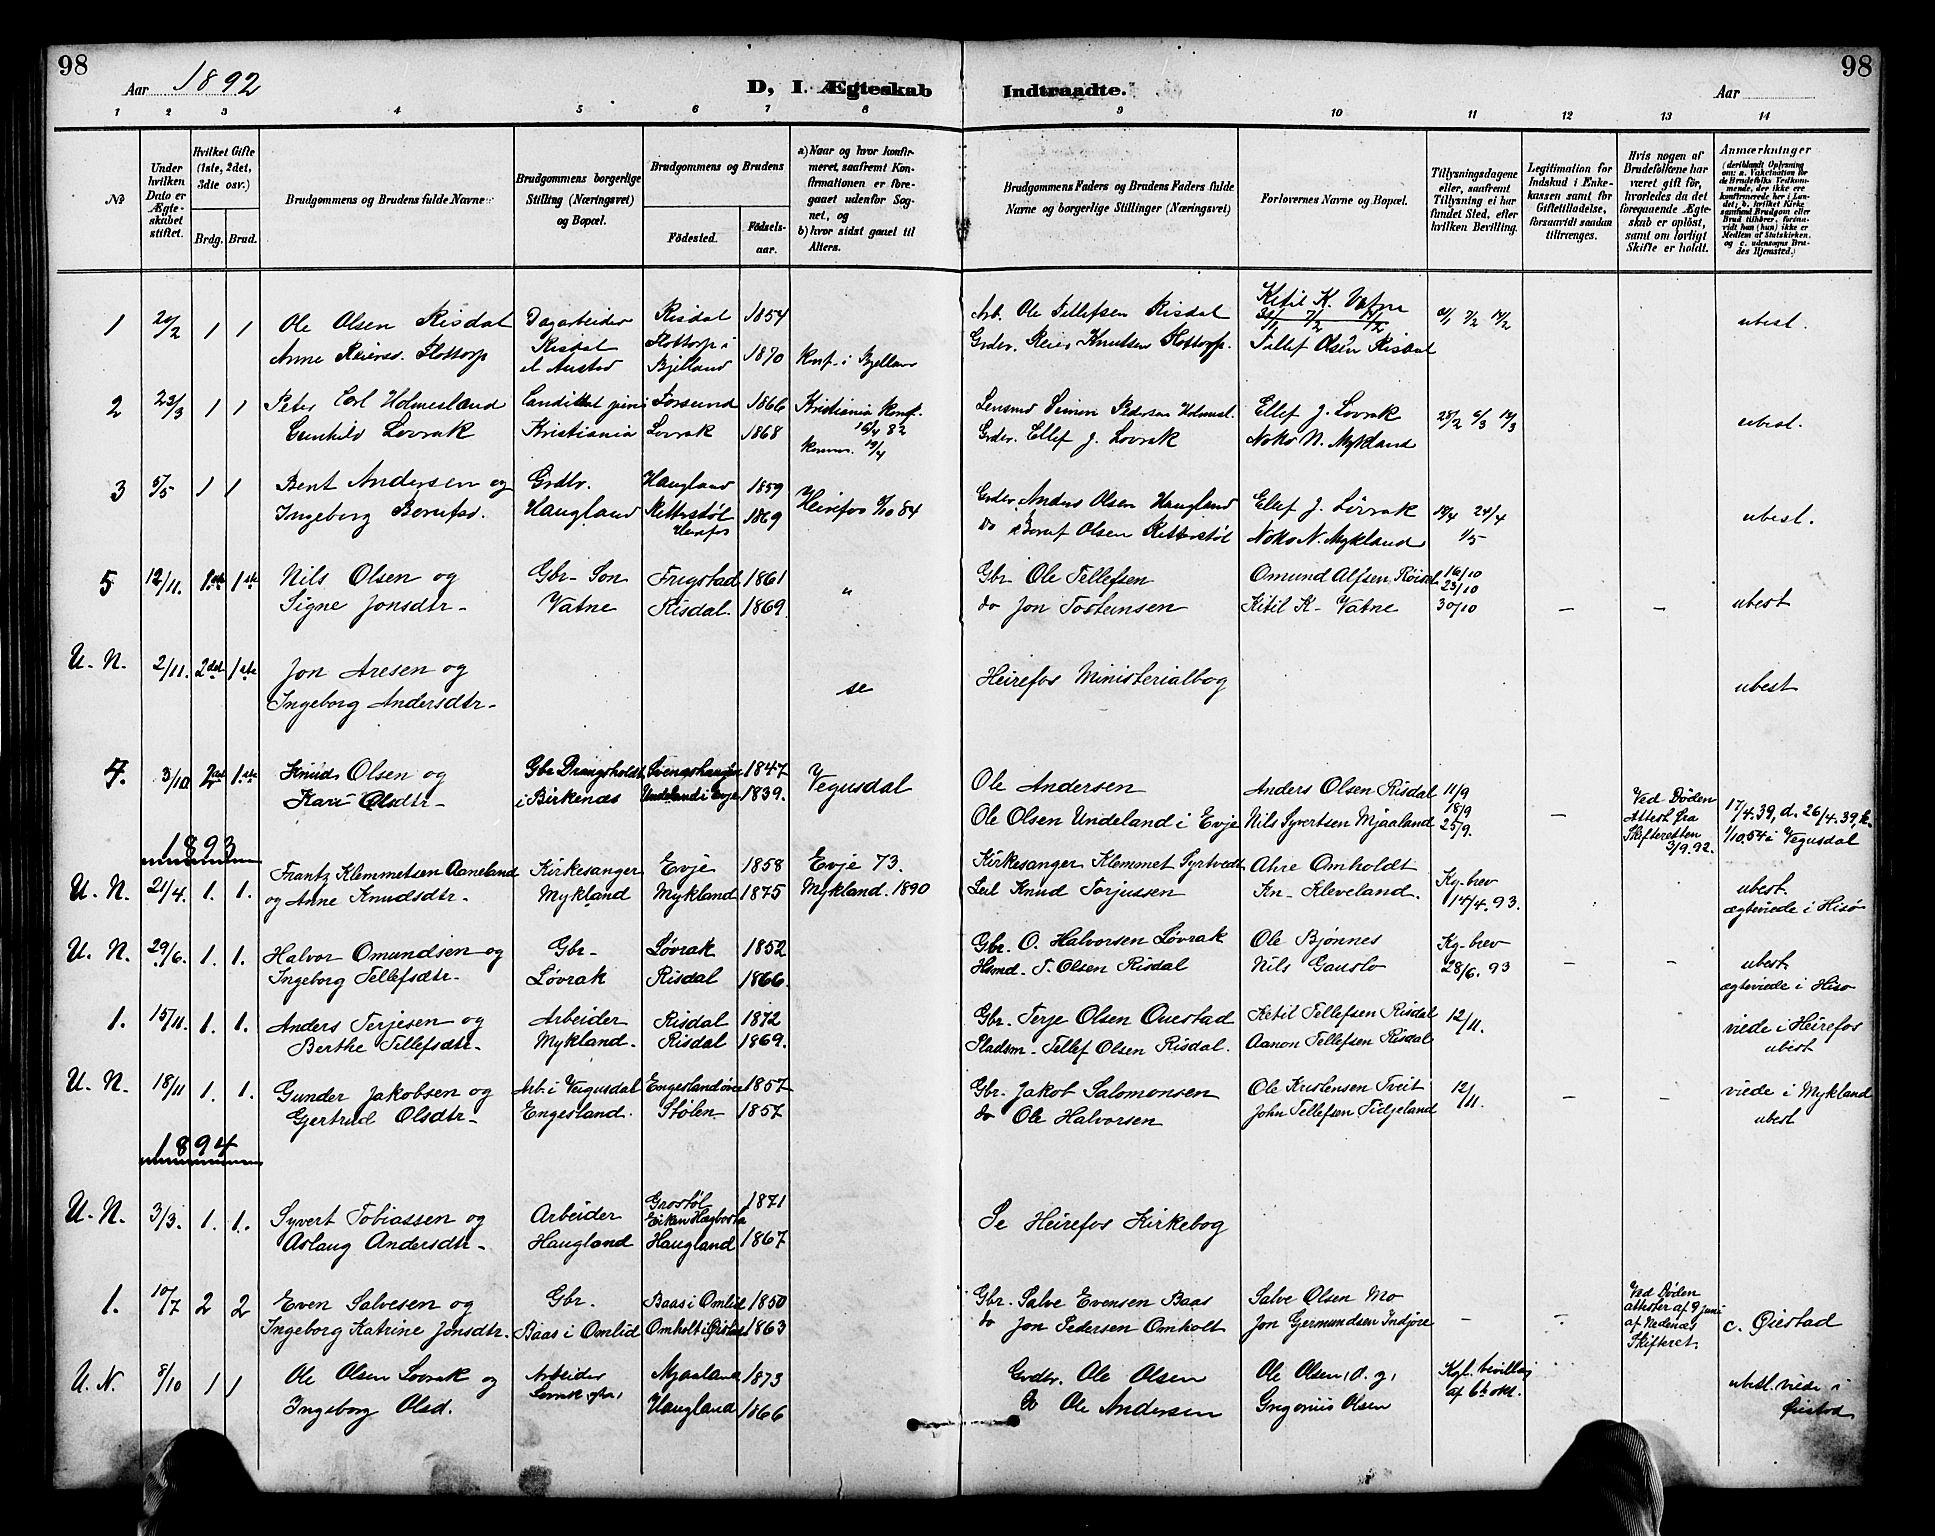 98
98
Aar 1892
D, I. Ægteskab Indtraadte.
Aar
1 2 3 4 5 6 7 8 9 10 11 12 13 14
No
Under hvilken Dato er Ægteskabet stiftet.
Hvilket Gifte (1ste, 2det, 3die osv.)
Brdg. Brud.
Brudgommens og Brudens fulde Navne.
Brudgommens borgerlige Stilling (Næringsvei) og Bopæl.
Brudgommens og Brudens
Fødested.
Fødselsaar.
a) Naar og hvor konfirmeret, saafremt Konfirmationen er foregaaet udenfor Sognet, og
b) hvor sidst gaaet til Alters.
Brudgommens Faders og Brudens Faders fulde Navne og borgerlige Stillinger (Næringsvei)
Forlovernes Navne og Bopæl.
Tillysningsdagene eller, saafremt Tillysning ei har fundet Sted, efter hvilken Bevilling.
Legitimation for Indskud i Enkekassen samt for Giftetilladelse, forsaavidt saadan tiltrænges.
Hvis nogen af Brudefolkene har været gift før, hvorledes da det foregaaende Ægteskab er opløst, samt om lovligt Skifte er holdt.
Anmærkninger
(deriblandt Oplysning om: a. Vakcination for de Brudefolks Vedkommende, der ikke ere konfirmerede her i Landet; b. hvilket Kirkesamfund Brudgom eller Brud tilhører, forsaavidt han (hun) ikke er Medlem af Statskirken, og c. udensogns Brudes Hjemsted.)
1 20/2 1 1 Ole Olsen Risdal Dagarbeider Risdal 1854 Arb. Ole Tellefsen Risdal Kitil K. Vatne 31/1 7/2 14/2 ubest.
Anne Reiersd. Flottorp Risdal Flottorp i Bjelland 1870 Konf. i Bjelland Grdbr. Reier Knutsen Flottorp. Tellef Olsen Risdal
2 23/3 1 1 Peter Carl Holmesland 1866 Kristiania Konf. 16/4 82 Lensmd Simon Pedersen Holmesl. Ellef J. Lovrak 28/2 6/3 13/3 ubest.
Gunhild Lovrak Kristiania Lovrak 1868 Grdbr. Ellef J. Lovrak Noks N. Mykland
3 5/5 1 1 Bent Andersen og Grdbr. Haugland 1859 Heirefos 84 Grdbr Anders Olsen Haugland Ellef J. Lövrak 24/4 ubest.
Ingeborg Berufsd. Haugland Retterstøl Heirefos 1869 do Beruf Olsen Retterstøl Noks N. Mykland 1/5
5 12/11. 1ste 1ste Nils Olsen og Gbr-Søn Frigstad 1861 " Gbr Ole Tellefsen Omund Alfsen Røisl. 16/10 23/10
Signe Jonsdtr- Vatne Risdal. 1869. do Jon Tosteinsen Kitil K- Vatne 30/10 - - ubest
U. N. 2/11. 2det 1ste Jon Aresen og se Heirefos Ministerialbog ubest
Ingeborg Andersdtr-
7. 3/10 2det 1ste Knud Olsen og Gbr Drangsholdt Svengshaugen 1847 Vegusdal Ole Andersen Anders Olsen Risdal 11/9 18/9
Kari Olsdtr- i Birkenæs Undeland i Evje 1839. Ole Olsen Undeland i Evje Nils Syvertsen Mjaaland 25/9. - Ved Døden Attest fra Skifteretten 3/9.92. 17/4.39, d. 26/4.39, k. 1/10.54 i Vegusdal
1893
U. N. 21/4. 1. 1. Frantz Klemmetsen Aaneland Kirkesanger Evje 1858 Evje 73. Kirkesanger Klemmet Syrtvedt Ahre Omholdt Kg-brev 14/4.93. ubest.
og Anne Knudsdtr- Mykland Mykland 1875 Mykland. 1890 Leil Knud Torjussen Kn- Kleveland. ægteviede i Hisø
U. N. 29/6. 1. 1. Halvor Omundsen og Gbr- Løvrak 1852 Gbr. O. Halvorsen Løvrak Ole Bjønnes Kg-brev 28/6. 93 - - ubest
Ingeborg Tellefsdtr- Løvrak Risdal 1866. Hsmd- T. Olsen Risdal Nils Gauslo ægteviede i Hisø
1. 15/11. 1. 1. Anders Terjesen og Arbeider Risdal 1872 Gbr. Terje Olsen Ouestad Ketil Tellefsen Risdal 12/11. viede i Heirefos
Berthe Tellefsdtr- Mykland- Risdal 1869. Pladsm- Tellef Olsen Risdal. Aanon Tellefsen Risdal ubest
U. N. 18/11 1. 1. Gunder Jakobsen og Arb. i Vegusdal Engeslandøva 1857 Gbr- Jakob Salomonsen Ole Kristensen Tveit 12/11. - - viede i Mykland
Gjertrud Olsdtr- Engesland. Stølen 1857 do Ole Halvorsen John Tellefsen Tidjeland ubest
1894
U. N. 3/3. 1. 1. Syvert Tobiassen og Arbeider Grostøl Eiken Hægbosta 1871 Se Heirefos Kirkebog
Aslaug Andersdtr- Haugland Haugland 1867
1. 10/7 2 2 Even Salvesen og Gbr. Baas i Omlid 1850 Gbr. Salve Evensen Baas Salve Olsen Mo Ved Døden attester af 9 juni af Nedenæs Skifteret. c. Øiestad
Ingeborg Katrine Jonsdtr. Baas i Omlid Omholt i Øiestad 1863 do Jon Pedersen Omholt Jon Germundsen Indjore - -
U. N. 8/10 1 1 Ole Olsen Lovrak og Arbeider Mjaaland 1873 Grdbr. Ole Olsen Ole Olsen, d. y, Kgl. bevilling af 6te okt. ubest. viede i Øiestad
Ingeborg Olsd. Haugland 1866 do Ole Andersen Gregorius Olsen